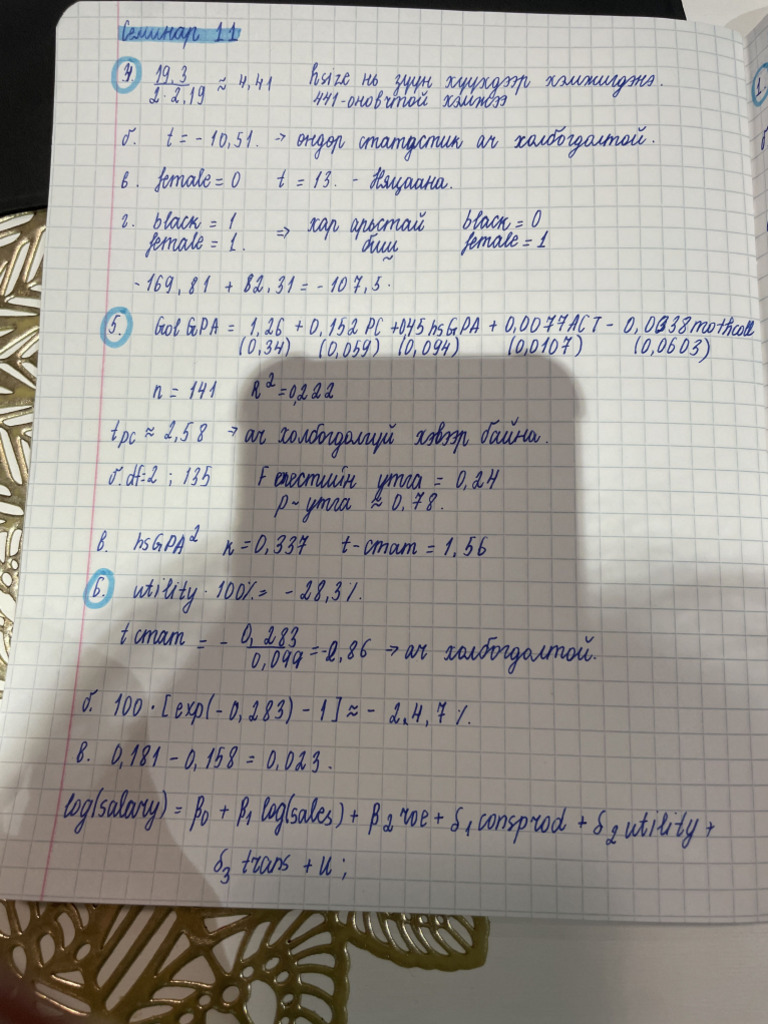 Семинар 11
4 19.3 / 2·2,19 ≈ 4,41 hsize нь зуун хүүхдээр хэмжигдэнэ.
441-оновчтой хэмжээ
б. t = -10,51. → өндөр статдстик ач холбогдолтой.
в. female = 0 t = 13. - Няцаана.
г. black = 1 ⇒ хар арьстай black = 0
female = 1. биш female = 1
-169,81 + 82,31 = -107,5.
5. Col GPA = 1,26 + 0,152 PC + 045 hsGPA + 0,0077 ACT - 0,0038 mothcoll
(0,34) (0,059) (0,094) (0,0107) (0,0603)
n = 141 R² = 0,222
t PC ≈ 2,58 → ач холбогдолгүй хэвээр байна.
б. df=2 ; 135 F тестийн утга = 0,24
p - утга ≈ 0,78.
в. hsGPA² к = 0,337 t-стат = 1,56
6. utility · 100% = - 28,3%.
t стат = - 0,283 / 0,099 = -2,86 → ач холбогдолтой.
б. 100 · [exp(-0,283) - 1] ≈ - 2.4,7 %.
в. 0,181 - 0,158 = 0,023.
log(salary) = β₀ + β₁ log(sales) + β₂ roe + δ₁ consprod + δ₂ utility +
δ₃ trans + u ;
1.